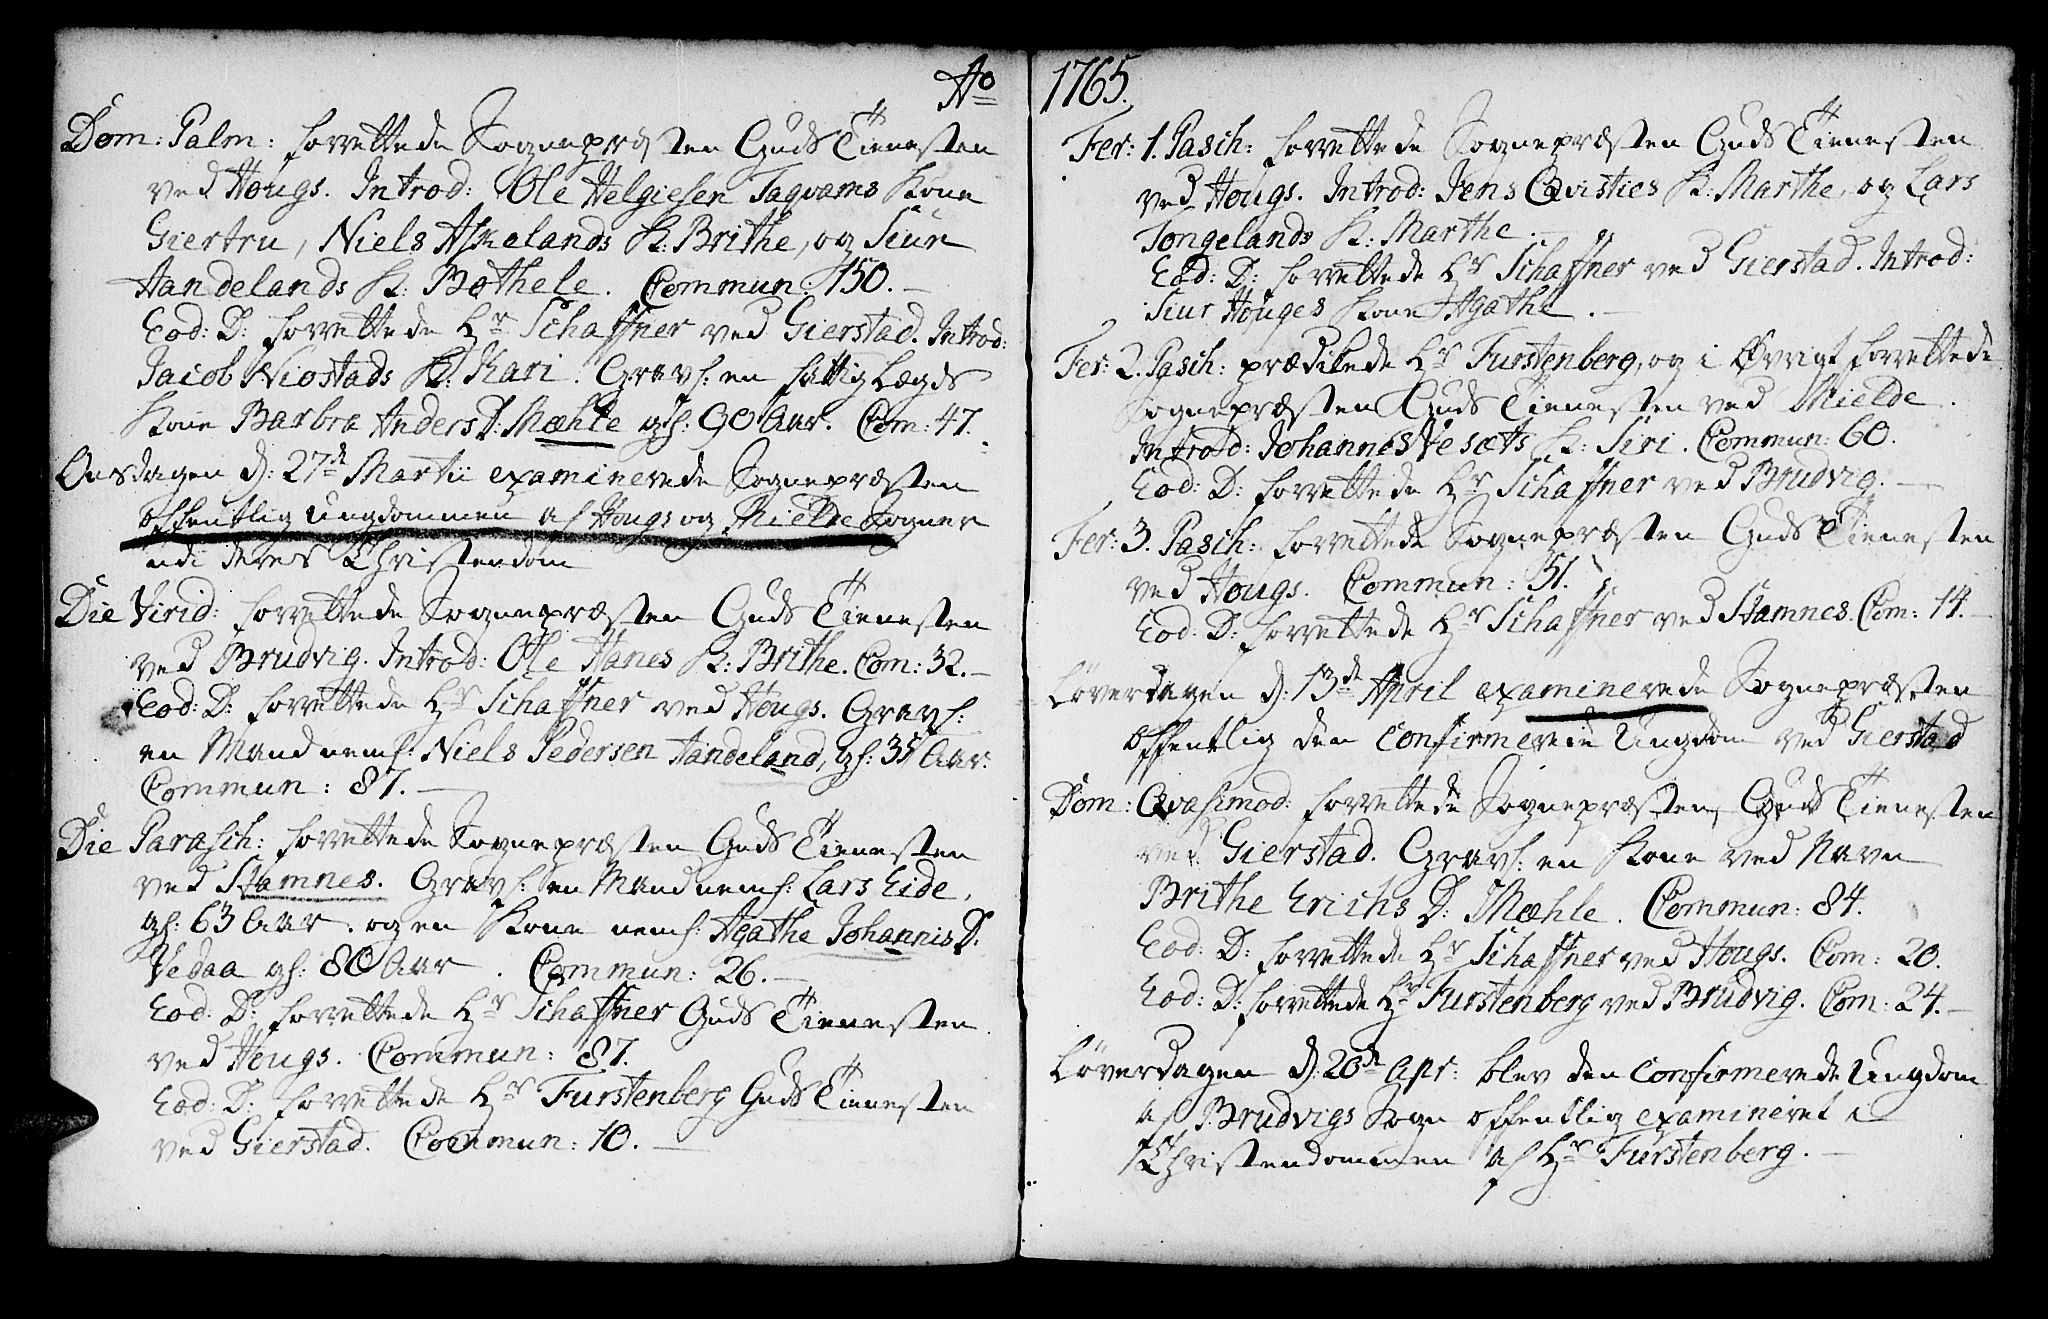 Ao
Dom: Palm: forrettede Sognepræsten Guds Tienesten
ved Hougs. Introd: Ole Helgiesen Taqvams Kone
Giertru, Niels Askelands K: Brithe, og Siur
Handelands K: Bothele. Commun: 150.
Eod: D: forrettede Hr Schaffner ved Gierstad. Introd:
Jacob Niostads K: Kari. Gravf: en fattig Lægds
Kone Barbra Anders D: Mæhle gf: 90 Aar. Com: 47.
Onsdagen d: 27de Martii examinerede Sognepræsten
offentlig ungdommen af Hougs og Mielde Sogner
udi deres Christendom
Die Virid: forrettede Sognepræsten Guds Tienesten
ved Brudvig. Introd: Ole Hanes K: Brithe. Com: 32.
Eod: D: forrettede Hr Schaffner ved Hougs. Gravf:
en Mand nemf: Niels Pedersen Handeland, gf: 35 Aar.
Commun: 87.
Die Parasch: forrettede Sognepræsten Guds Tienesten
ved Stamnes. Gravf: en Mand nemf: Lars Eide,
gf: 63 Aar. og en Kone nemf: Agathe Johannis D:
Vedaa gf: 80 Aar. Commun: 26.
Eod: D: forrettede Hr Schaffner Guds Tienesten
ved Hougs. Commun: 87.
Eod: D: forrettede Hr Furstenberg Guds Tienesten
ved Gierstad. Commun: 10.
1765.
Fer: 1. Pasch: forrettede Sognepræsten Guds Tienesten
ved Hougs. Introd: Jens Qvisties K: Marthe, og Lars
Tongelands K: Marthe.
Eod: D: forrettede Hr Schaffner ved Gierstad. Introd:
Siur Houges Kone Agathe.
Fer: 2. Pasch: prædikede Hr Furstenberg, og i Øvrigt forrettede
Sognepræsten Guds Tienesten ved Mielde.
Introd: Johannes Vesæts K: Siri. Commun: 60.
Eod: D: forrettede Hr Schaffner ved Brudvig.
Fer: 3. Pasch: forrettede Sognepræsten Guds Tienesten
ved Hougs. Commun: 51.
Eod: D: forrettede Hr Schaffner ved Stamnes. Com: 14.
Løverdagen d: 13de April examinerede Sognepræsten
offentlig den confirmerede Ungdom ved Gierstad
Dom: Qvasimod: forrettede Sognepræsten Guds Tienesten
ved Gierstad. Gravf: en Kone ved Navn
Brithe Erichs D: Mæhle. Commun: 84.
Eod: D: forrettede Hr Schaffner ved Hougs. Com: 20.
Eod: D: forrettede Hr Furstenberg ved Brudvig. Com: 24.
Løverdagen d: 20de Apr: blev den confirmerede Ungdom
af Brudvigs Sogn offentlig examineret i
Christendommen af Hr Furstenberg.